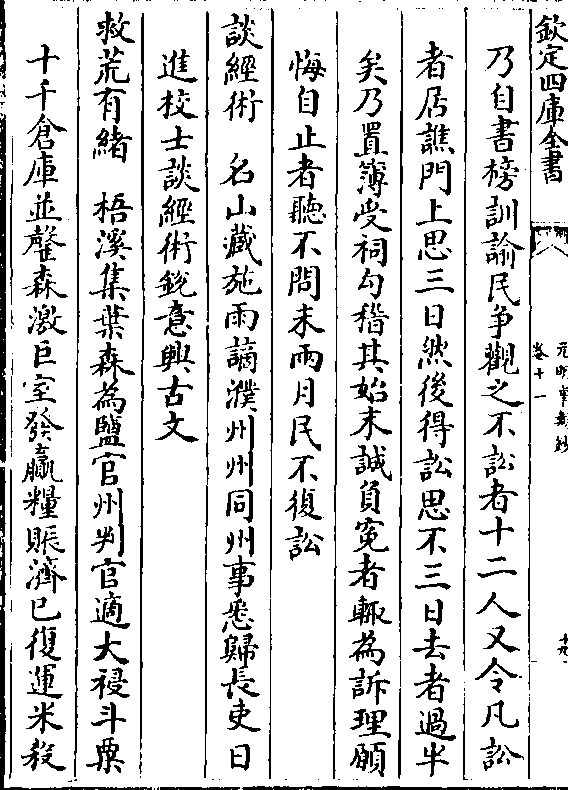 欽定四庫全書
元明事類鈔
卷十一
乃自書榜訓諭民爭觀之不訟者十二人又令凡訟
者居譙門上思三日然後得訟思不三日去者過半
矣乃置簿受祠勾稽其始末誠負寃者輙為訴理願
悔自止者聽不問未兩月民不復訟
談經術　名山藏施雨謫濮州州同州事悉歸長吏日
進校士談經術銳意興古文
救荒有緒　梧溪集葉森為鹽官州判官適大祲斗粟
十千倉庫並罄森激巨室發贏糧賑濟已復運米殺